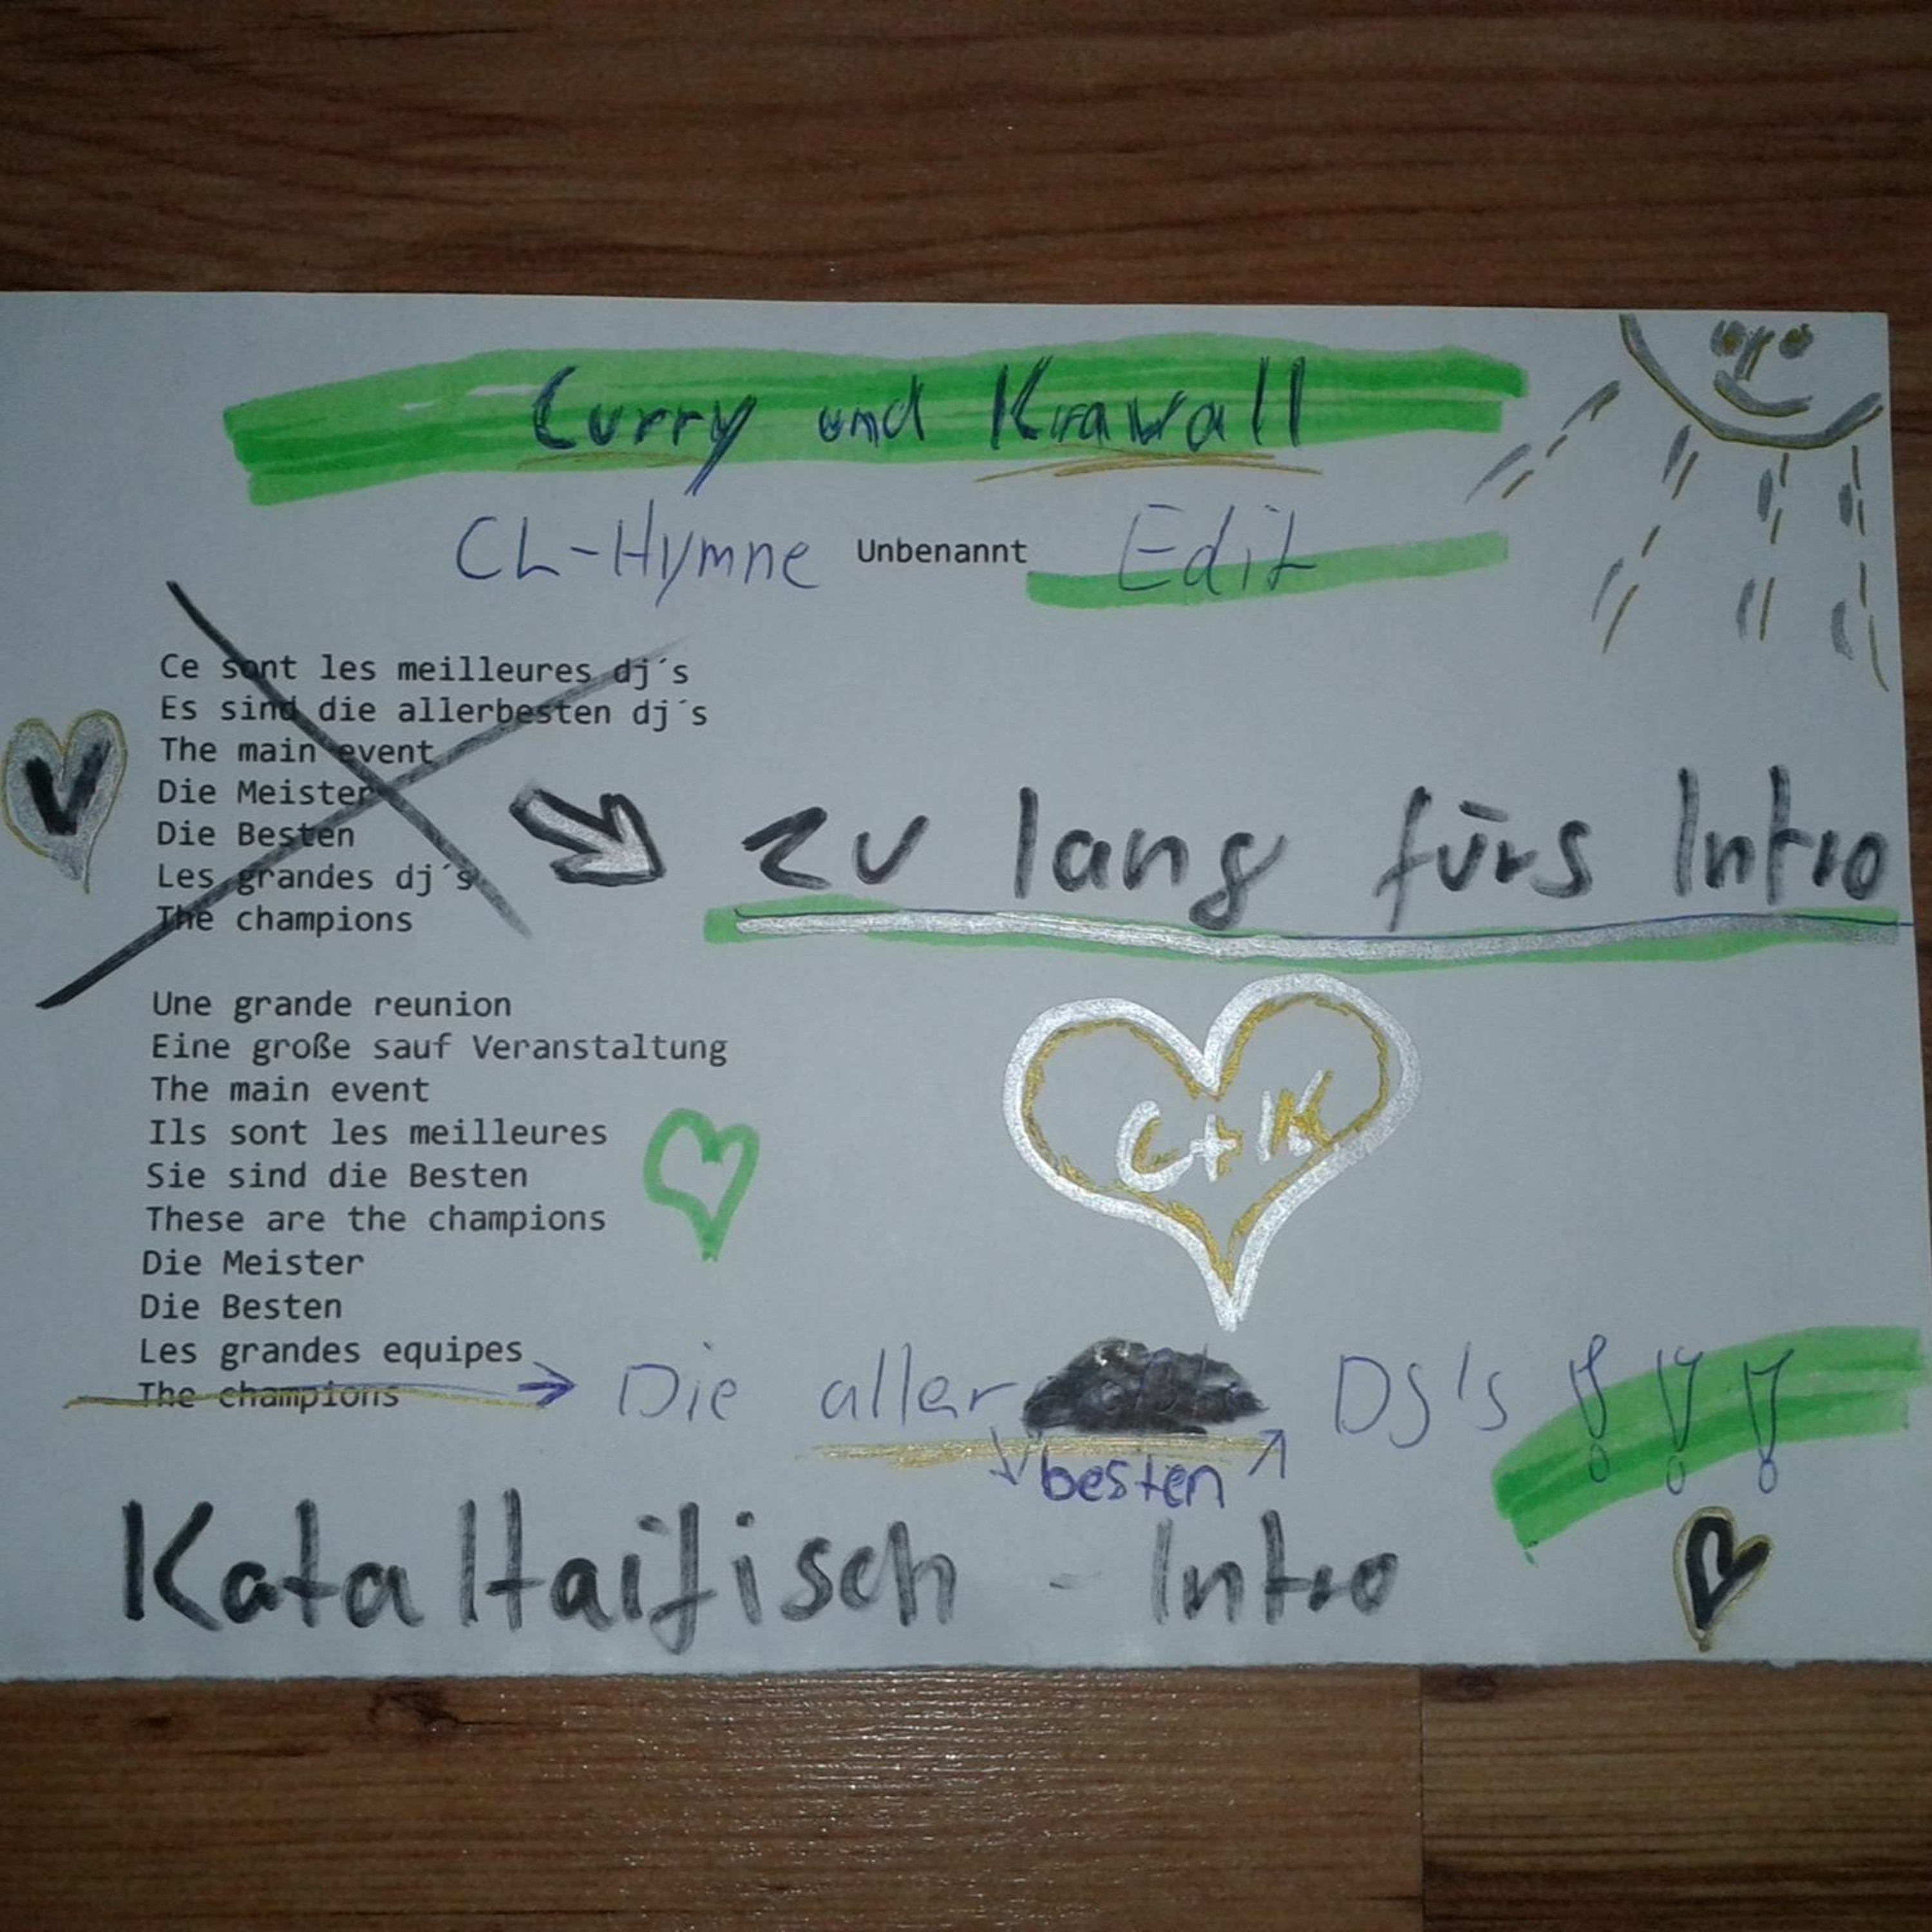 Curry und Krawall
CL-Hymne Unbenannt Edit
Ce sont les meilleures dj´s
Es sind die allerbesten dj´s
The main event
Die Meister
Die Besten
Les grandes dj´s
The champions
zu lang fürs Intro
Une grande reunion
Eine große sauf Veranstaltung
The main event
Ils sont les meilleures
Sie sind die Besten
These are the champions
Die Meister
Die Besten
Les grandes equipes
The champions
C+K
Die aller besten DJ's !!!
KataHaifisch - Intro